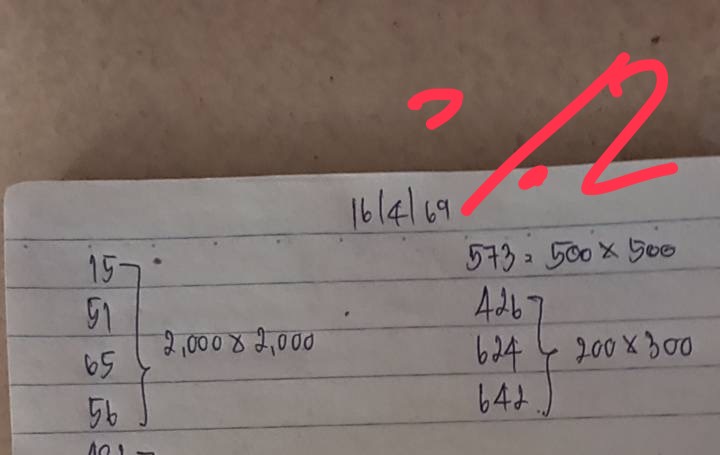 16/4/69
15
51
65
56
2,000 x 2,000
573 = 500 x 500
426
624
642
200 x 300